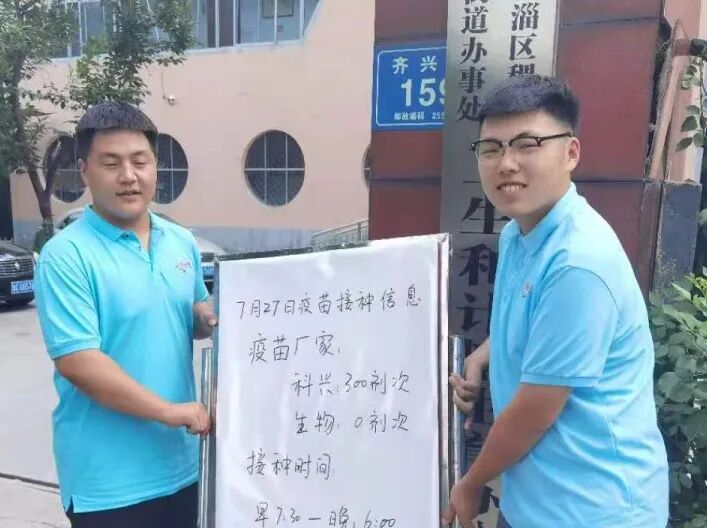 7月27日疫苗接种信息
疫苗厂家:
科兴:300剂次
生物:0剂次
接种时间:
早7:30—晚6:00
齐兴
159
邮政编码 255
淄区稷
街道办事处
生和计